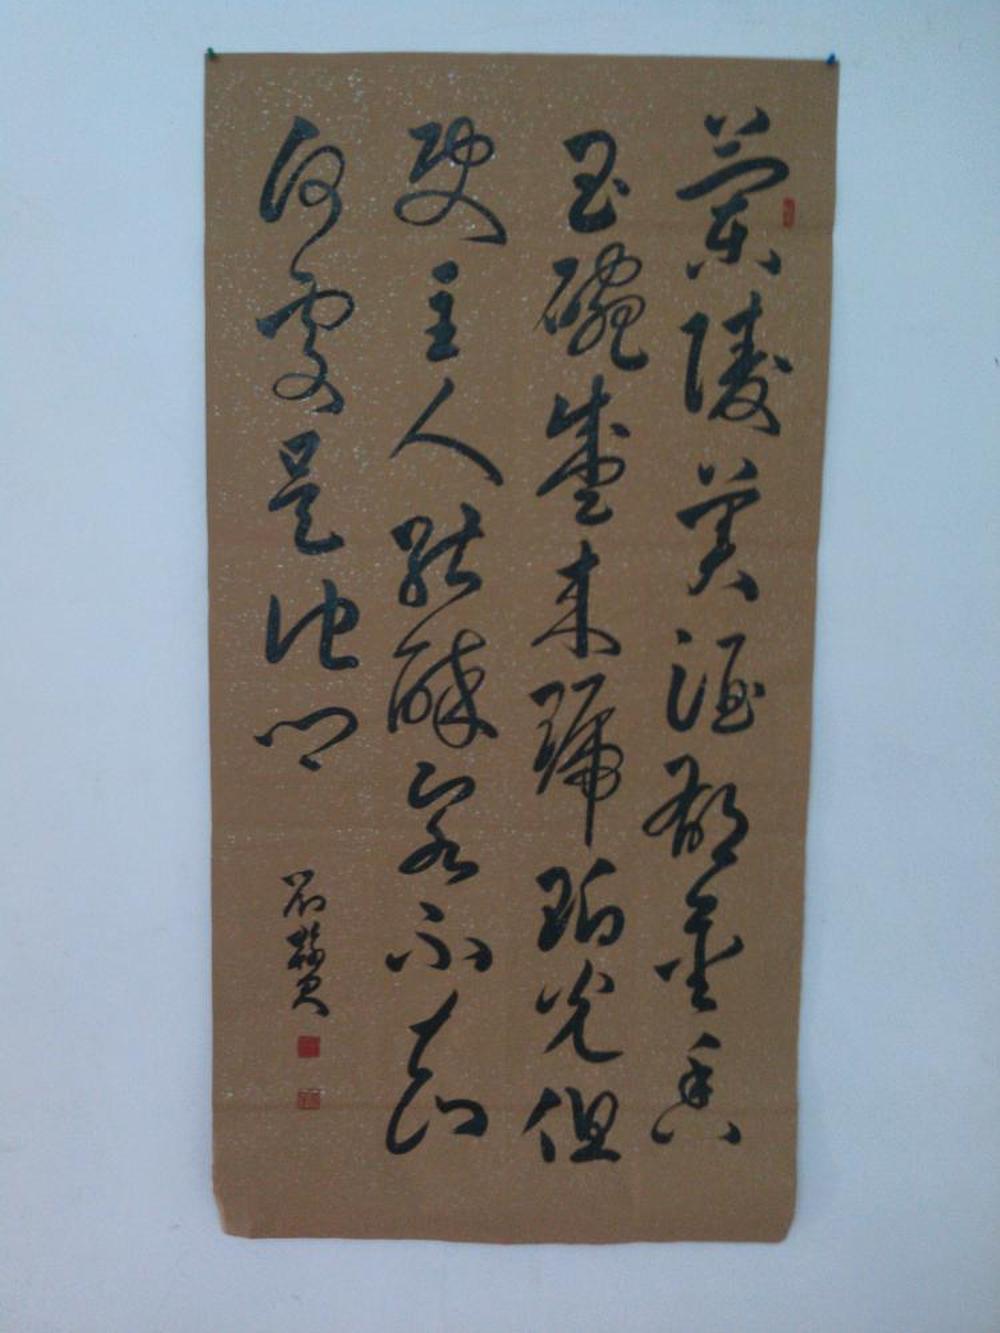 蘭陵美酒郁金香
玉碗盛来琥珀光但
使主人能醉客不知
何处是他乡